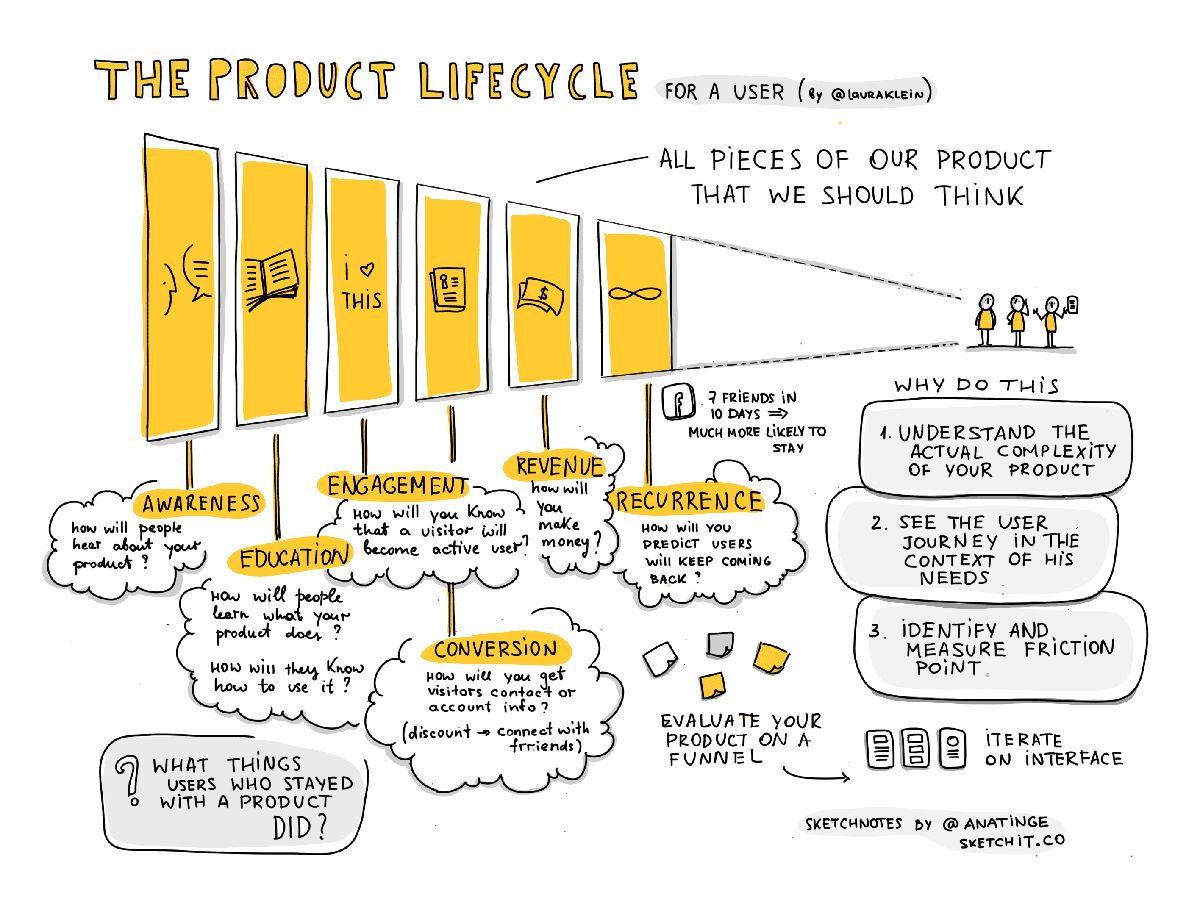 THE PRODUCT LIFECYCLE
FOR A USER (By @LAURAKLEIN)
ALL PIECES OF OUR PRODUCT
THAT WE SHOULD THINK
i ♡
THIS
$
f
7 FRIENDS IN
10 DAYS ⇒
MUCH MORE LIKELY TO
STAY
AWARENESS
how will people
hear about your
product?
EDUCATION
HOW will people
learn what your
product does?
HOW will they KNOW
how to use it?
ENGAGEMENT
HOW will you KNOW
that a visitor will
become active user?
CONVERSION
HOW will you get
visitors contact or
account info?
(discount → connect with
frriends)
REVENUE
how will
you
make
money?
RECURRENCE
HOW will YOU
PREDICT USERS
will KEEP COMING
BACK?
WHY DO THIS
1. UNDERSTAND THE
ACTUAL COMPLEXITY
OF YOUR PRODUCT
2. SEE THE USER
JOURNEY IN THE
CONTEXT OF HIS
NEEDS
3. IDENTIFY AND
MEASURE FRICTION
POINT.
EVALUATE YOUR
PRODUCT ON A
FUNNEL
ITERATE
ON INTERFACE
? WHAT THINGS
USERS WHO STAYED
WITH A PRODUCT
DID?
SKETCHNOTES BY @ANATINGE
SKETCHIT.CO